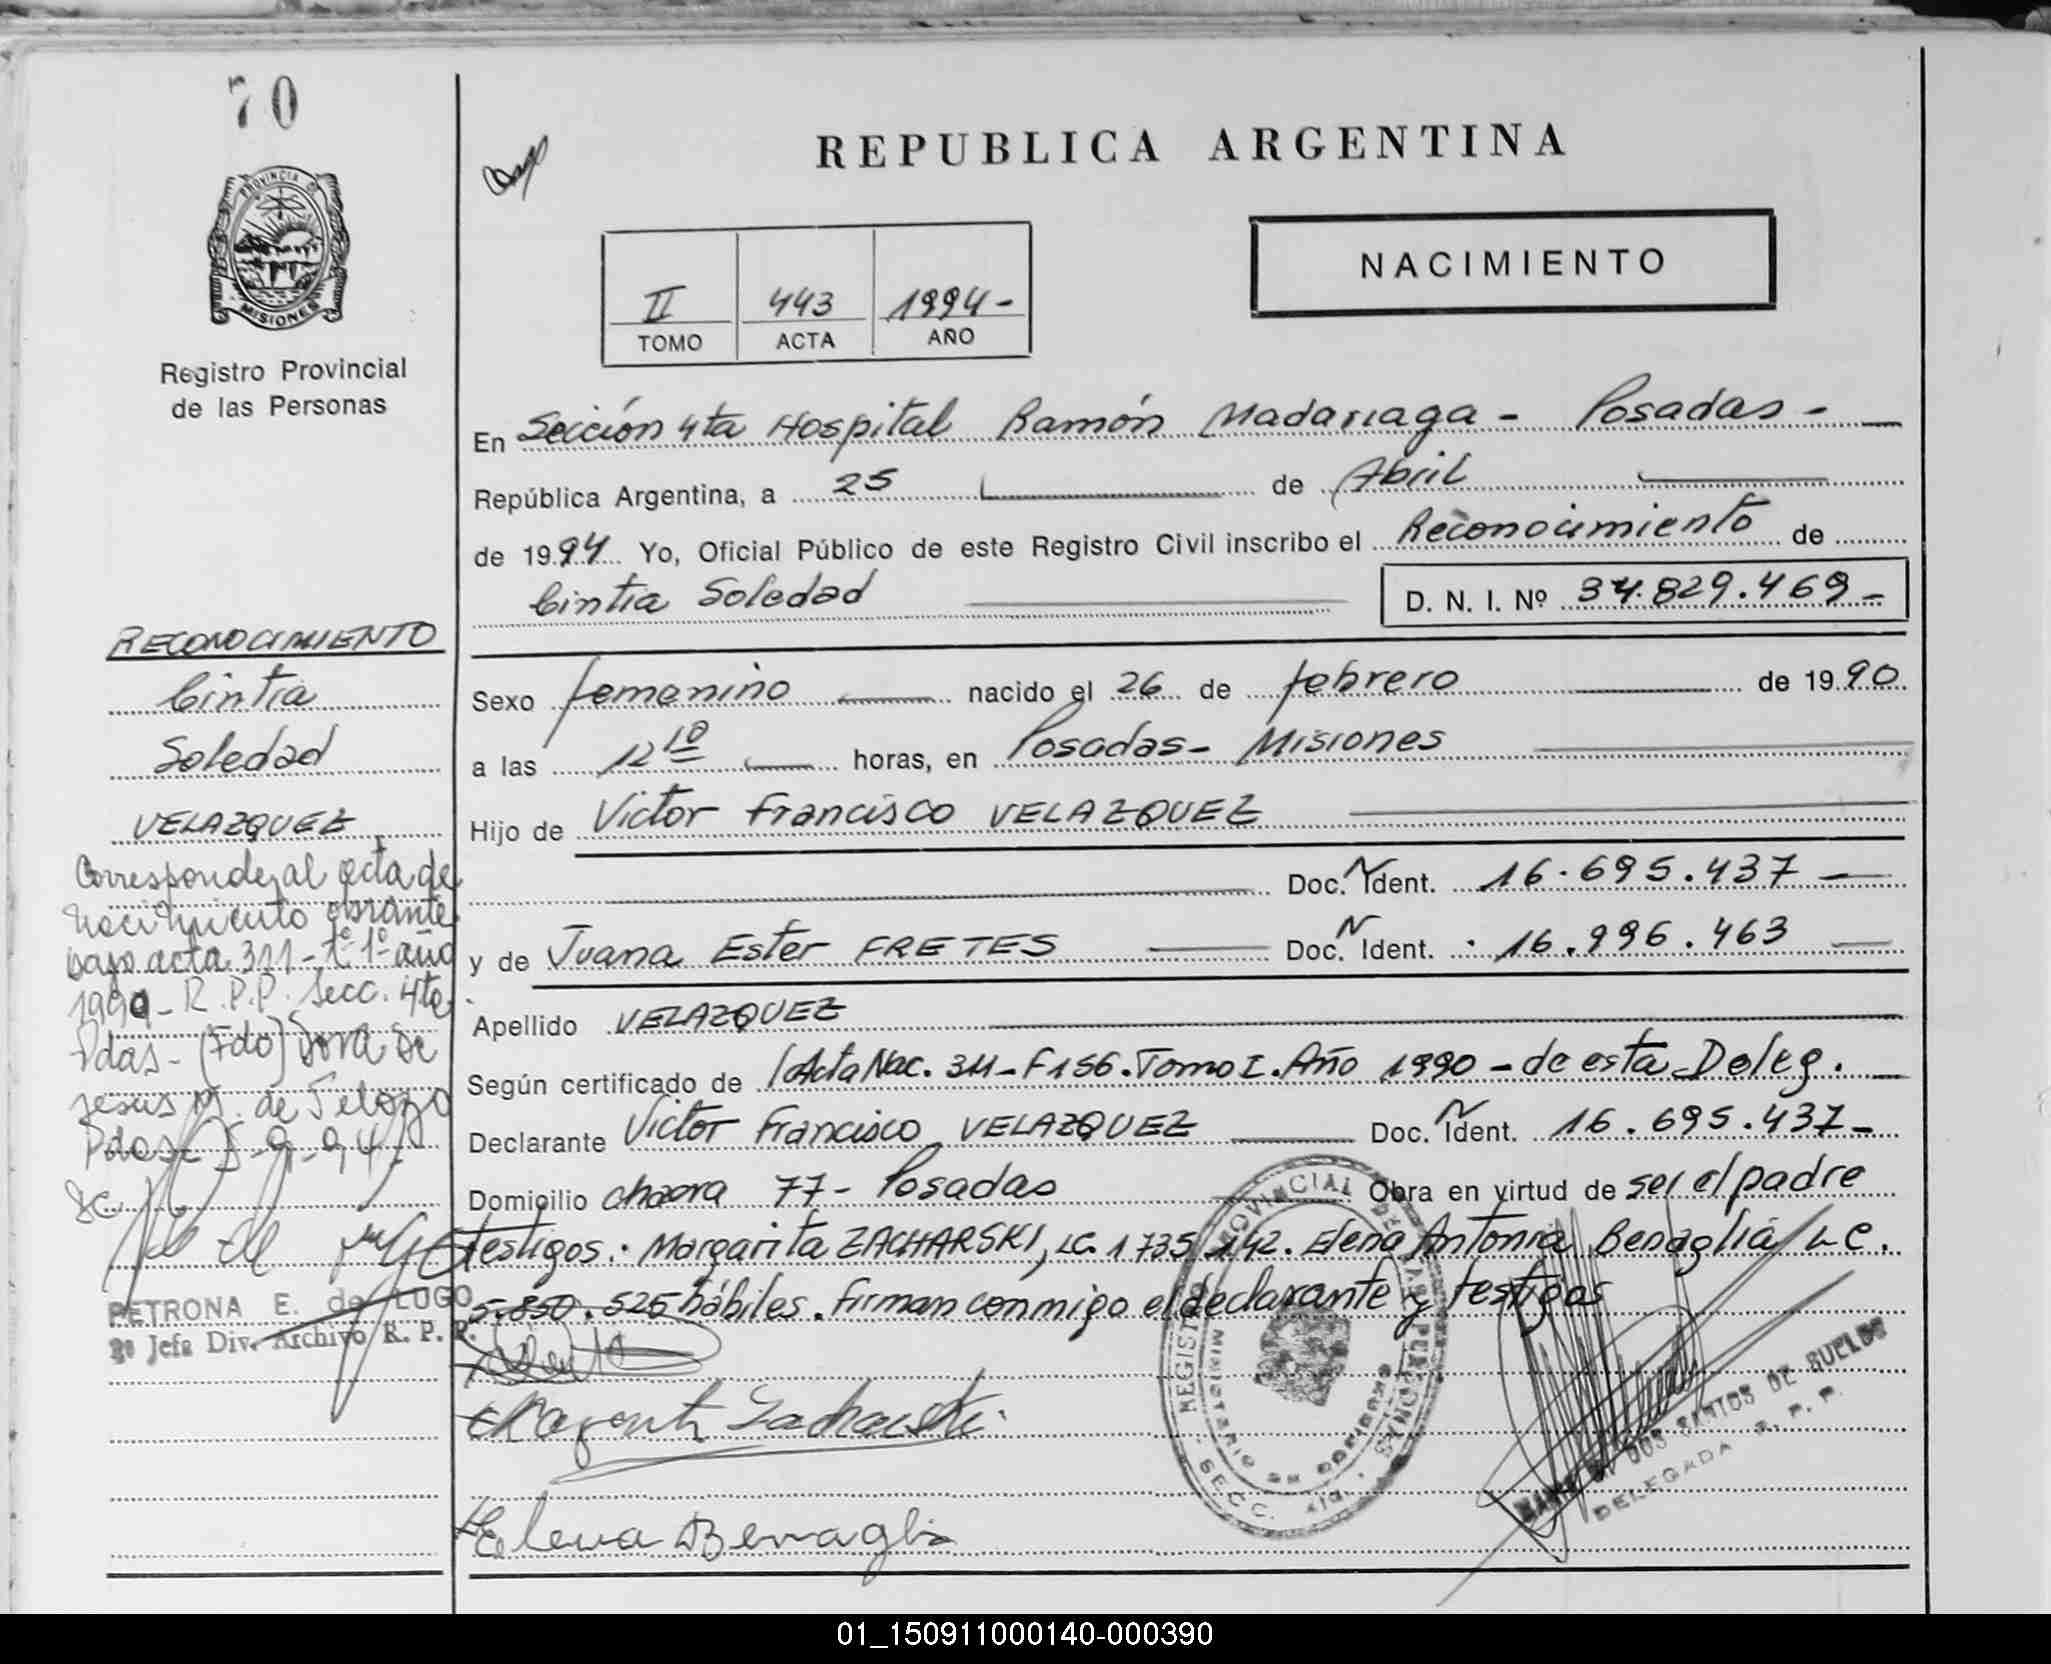 70
PROVINCIA DE
MISIONES
Registro Provincial
de las Personas
RECONOCIMIENTO
Cintia
Soledad
VELAZQUEZ
Corresponde al acta de
nacimiento obrante
bajo acta 311 - tº 1º año
1990 - R.P.P. Secc. 4ta
Pdas - (Fdo) Dora de
Jesus M. de
Pdas 5-9-94
PETRONA E. de LUGO
2º Jefa Div. Archivo R. P. P.
REPUBLICA ARGENTINA
II 443 1994-
TOMO ACTA AÑO
NACIMIENTO
En Sección 4ta Hospital Ramón Madariaga - Posadas -
República Argentina, a 25 de Abril
de 1994 Yo, Oficial Público de este Registro Civil inscribo el Reconocimiento de
Cintia Soledad D. N. I. Nº 34.829.469-
Sexo femenino nacido el 26 de febrero de 1990
a las 12 10 horas, en Posadas - Misiones
Hijo de Victor Francisco VELAZQUEZ
Doc. N Ident. 16.695.437
y de Juana Ester FRETES Doc. N Ident. 16.996.463
Apellido VELAZQUEZ
Según certificado de Acta Nac. 311 - F 156. Tomo I. Año 1990 - de esta Deleg.
Declarante Victor Francisco VELAZQUEZ Doc. N Ident. 16.695.437-
Domicilio chacra 77 - Posadas Obra en virtud de ser el padre
testigos: Margarita ZACHARSKI, LC. 1735142. Elena Antonia Benaglia LC.
5.850.525 hábiles. Firman conmigo el declarante y testigos
REGISTRO PROVINCIAL DE LAS PERSONAS
MINISTERIO DE GOBIERNO
SECC. 4ta.
Elena Benaglia
DOS SANTOS DE BUELOS
DELEGADA R. P. P.
01_150911000140-000390